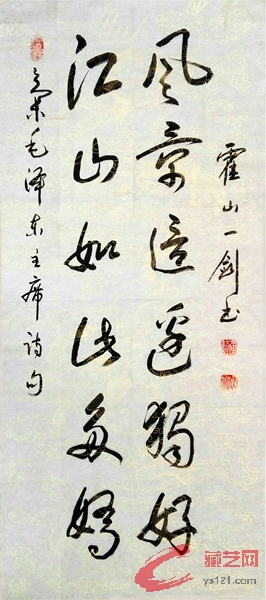 霍山一剑书
风景这边独好
江山如此多娇
毛泽东主席诗句
藏艺网
ys121.com